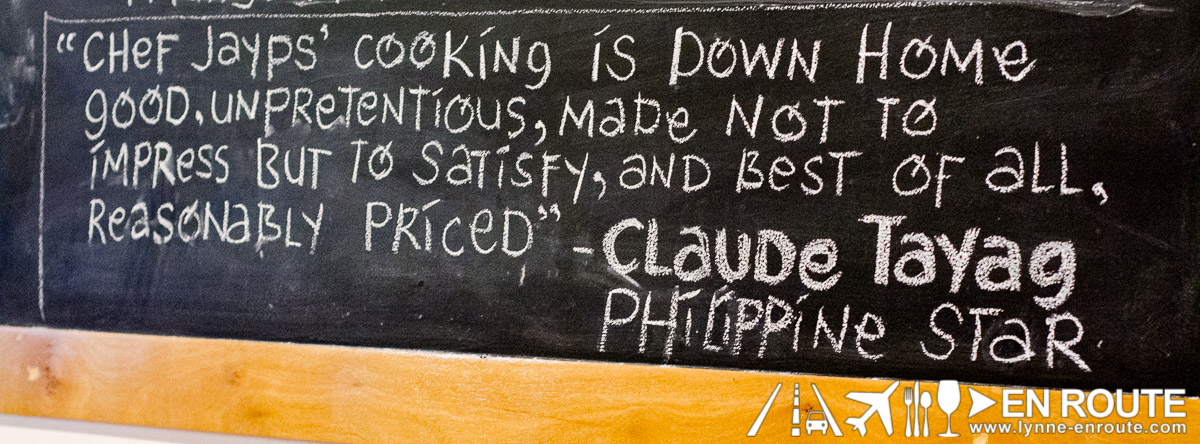 “CHeF Jayps’ COOKiNg iS DOWN HOMe
gOOD, UNPReTeNTiOUS, MaDe NOT TO
iMPReSS BUT TO SaTiSFy, aND BeST OF aLL,
ReaSONaBLy PRiCeD”
-CLaUDe Tayag
PHiLiPPiNe STaR.
EN ROUTE
www.lynne-enroute.com